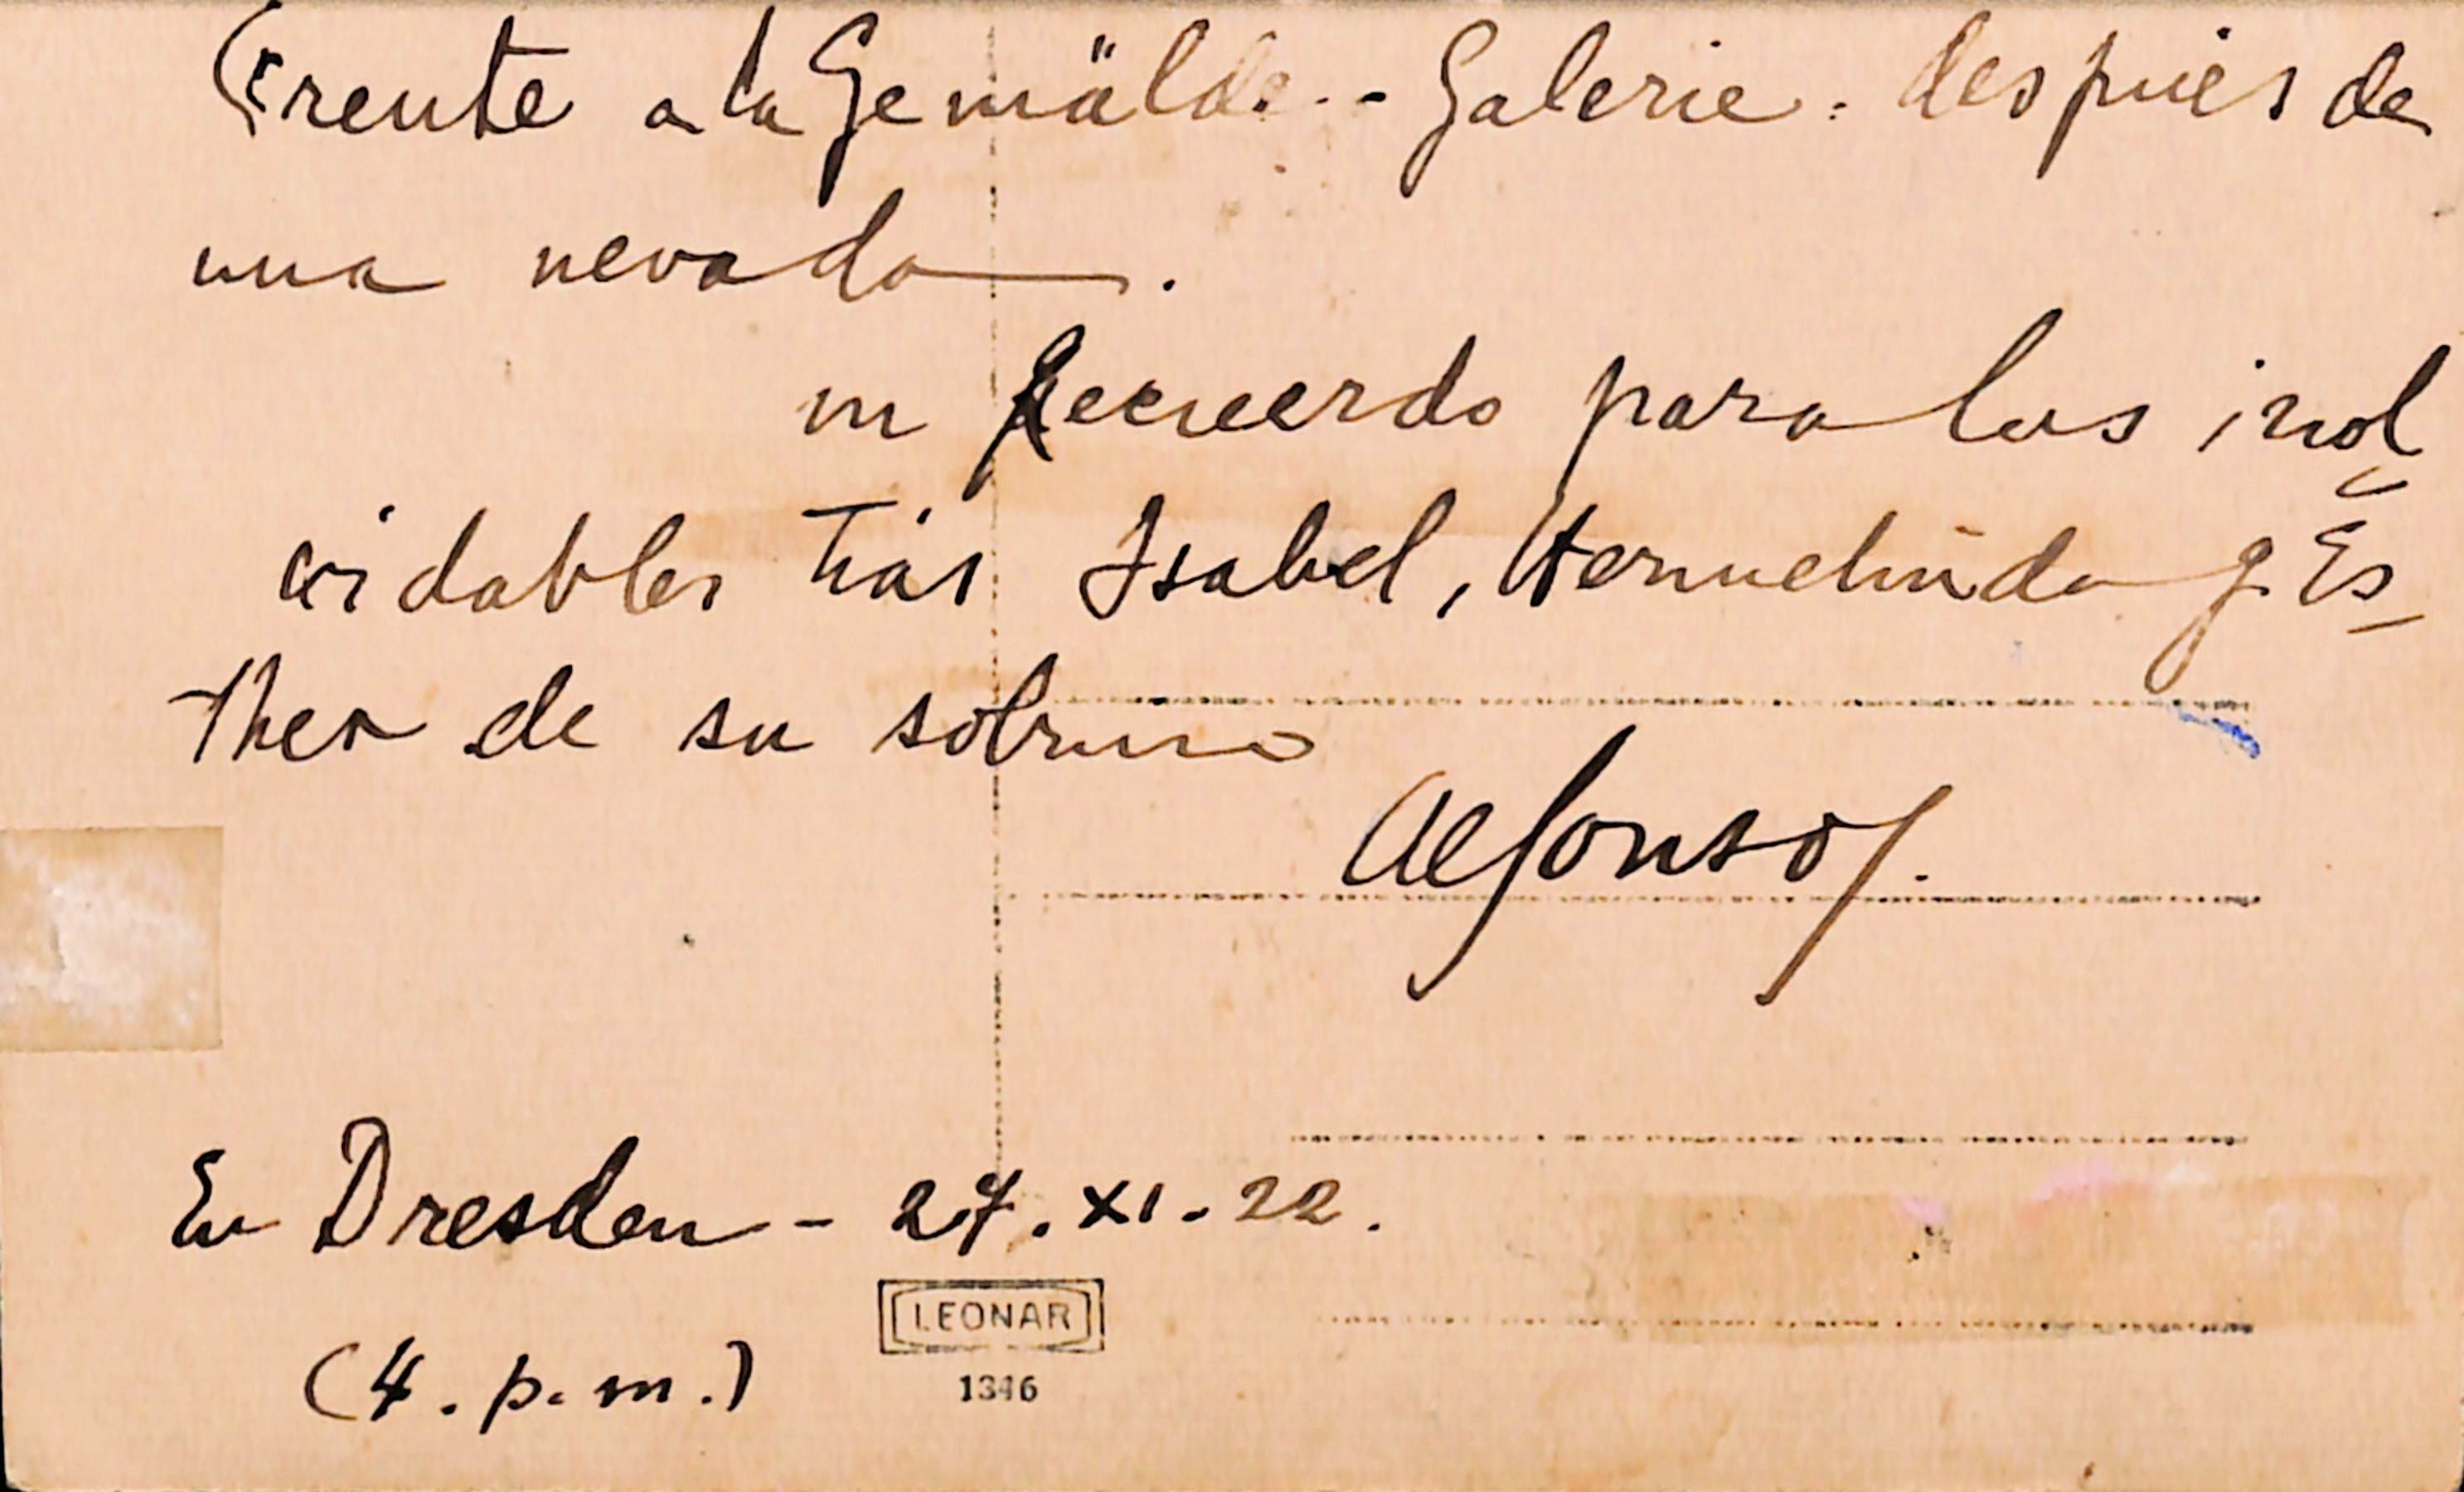 Frente a la Gemälde - Galerie. después de
una nevada.
un Recuerdo para las inol
vidables Tías Isabel, Hermelinda y Es-
ther de su sobrino
Alfonso J.
En Dresden - 27. XI. 22.
(4. p. m.)
LEONAR
1346